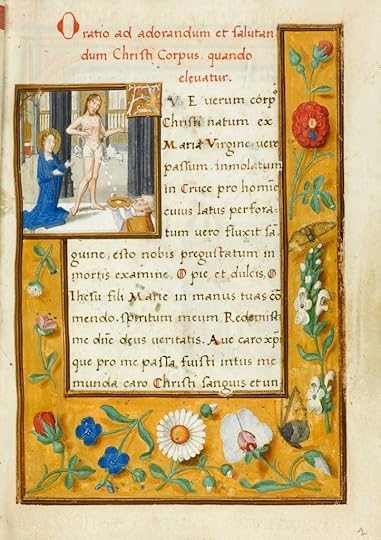 Oratio ad adorandum et salutan
dum Christi Corpus, quando
eleuatur.
AVE verum corpꝰ
Christi natum ex
Maria Virgine vere
passum, inmolatum
in Cruce pro homīe
cuius latus perfora
tum vero fluxit sā
guine, esto nobis pregustatum in
mortis examine, O pie, et dulcis, O
Ihesu fili Marie in manus tuas cō
mendo, spiritum meum, Redemisti
me dn̄e deus veritatis. Aue caro xp̄i
que pro me passa fuisti intus me
munda caro Christi sanguis et un
1